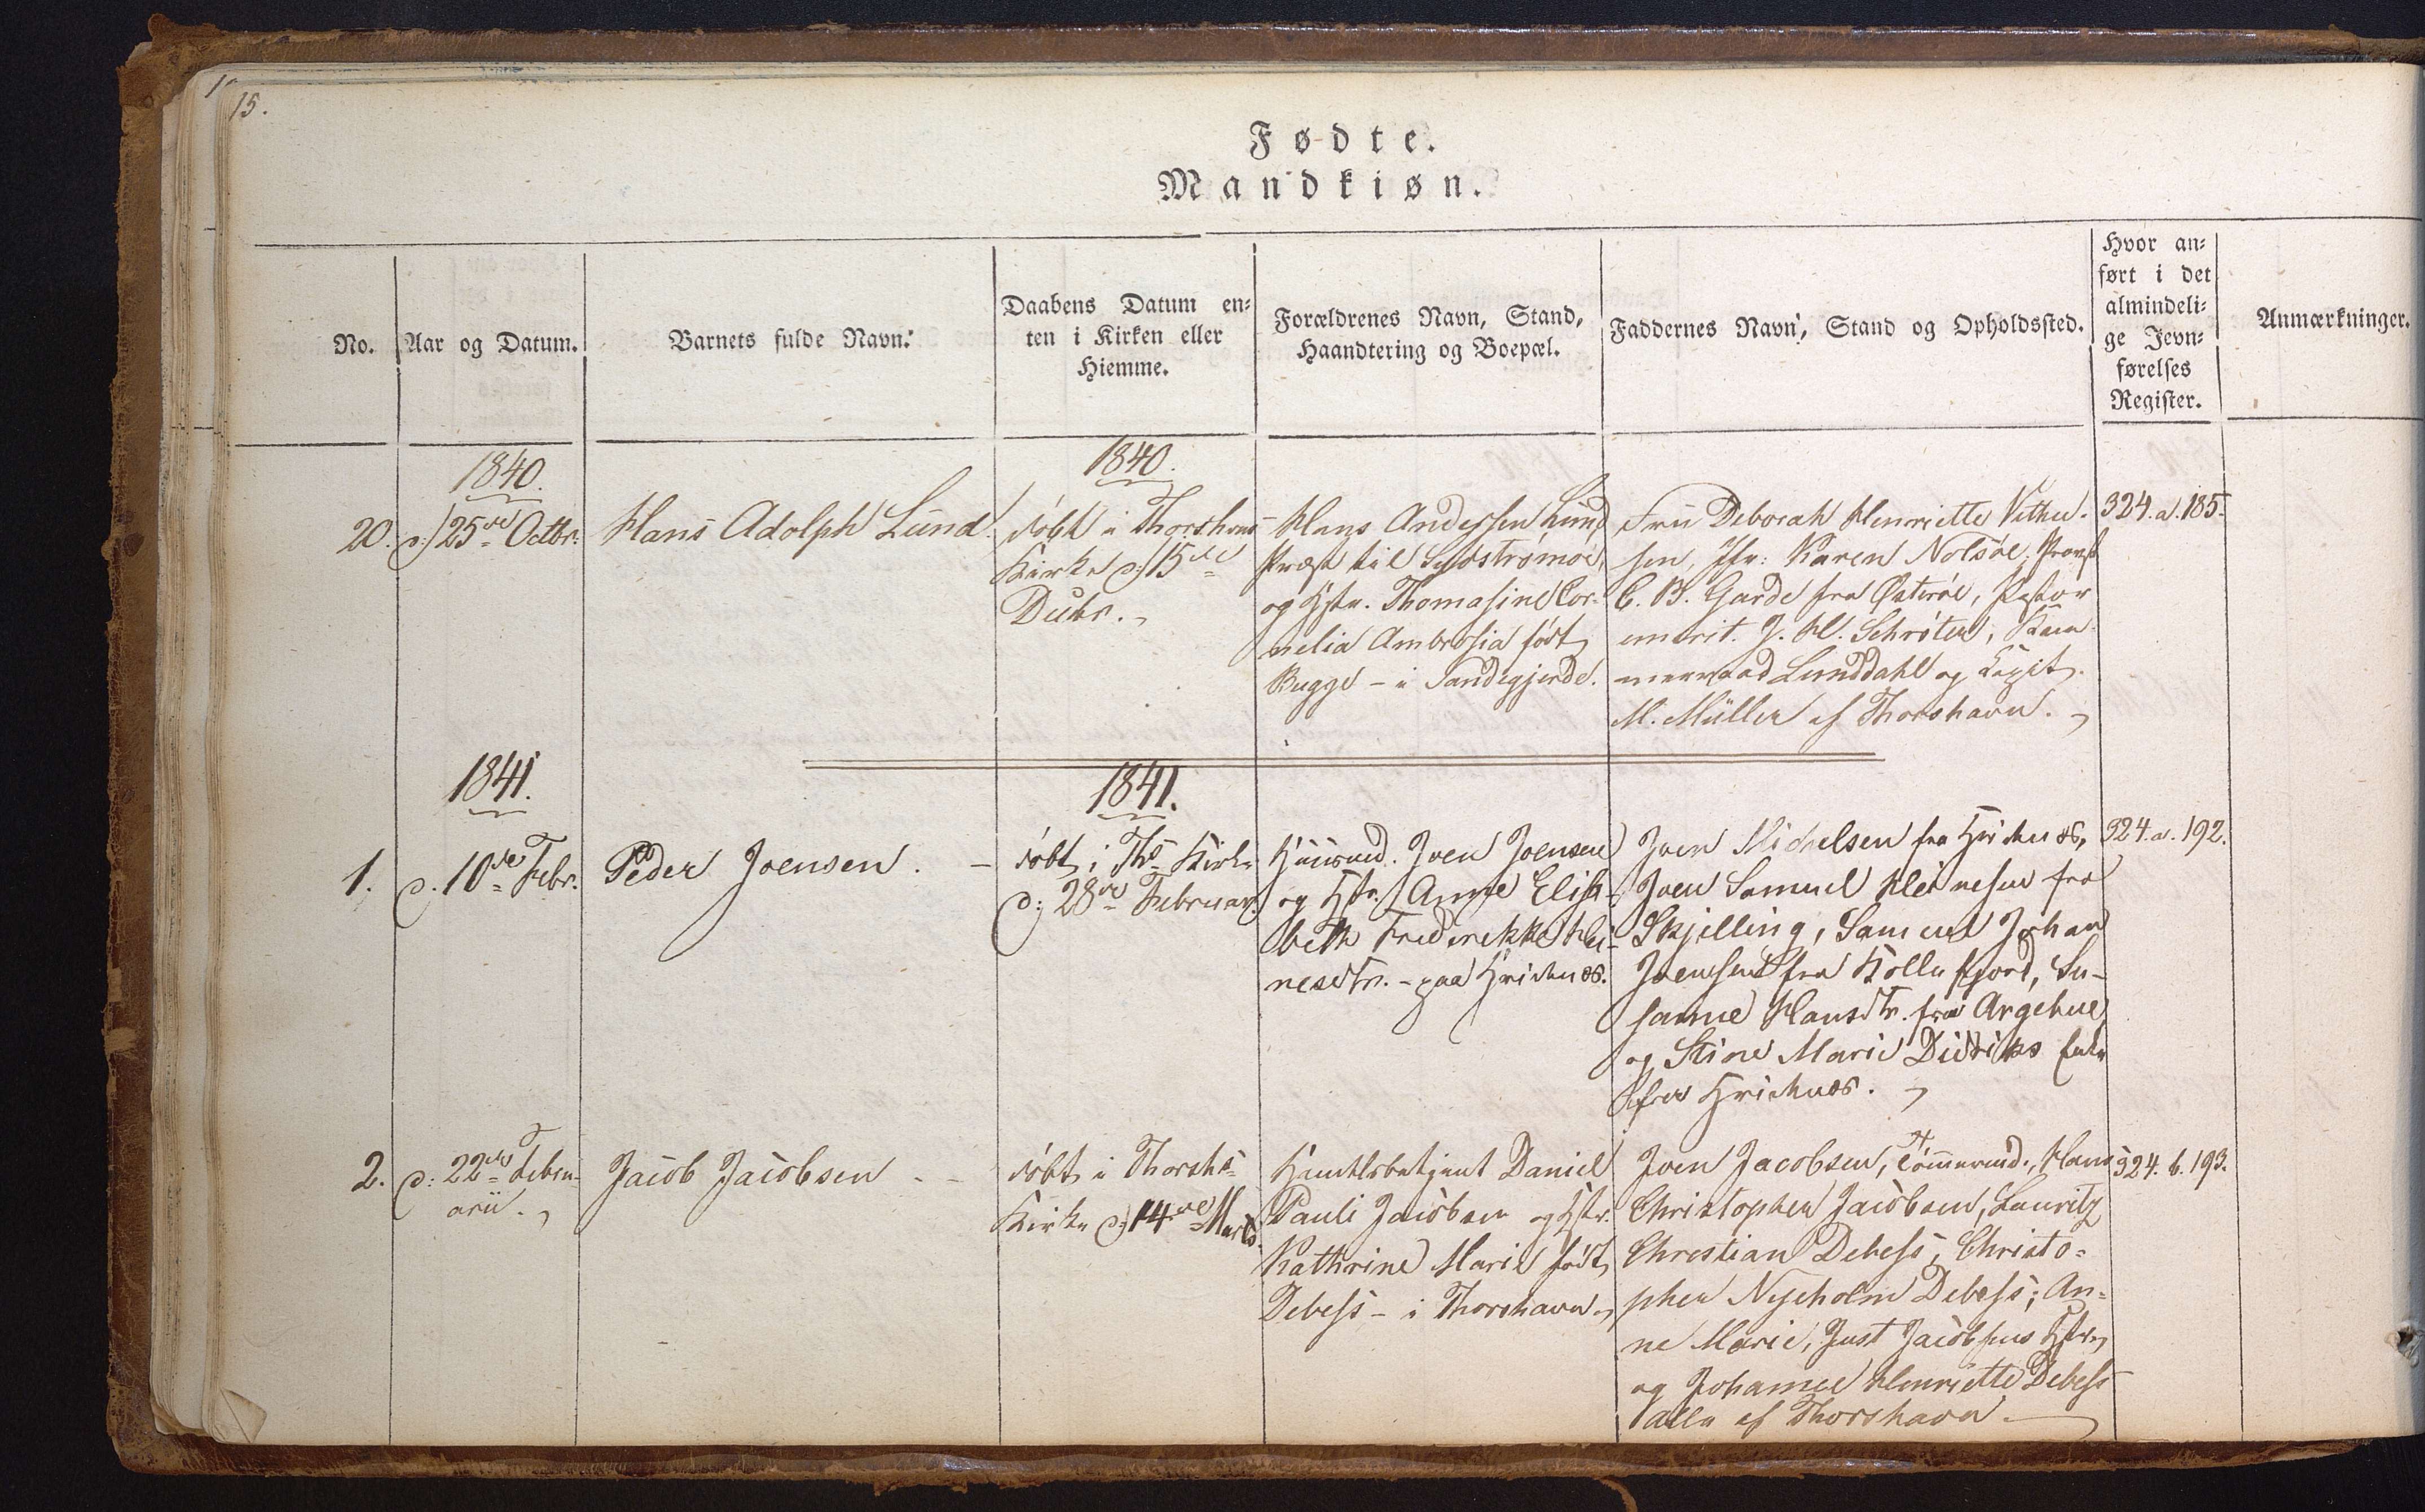 15.
Fødte.
Mandkiøn.
No.
Aar og Datum.
Barnets fulde Navn.
Daabens Datum en-
ten i Kirken eller
Hiemme.
Forældrenes Navn, Stand,
Haandtering og Boepæl.
Faddernes Navn, Stand og Opholdssted.
Hvor an-
ført i det
almindeli-
ge Jevn-
førelses
Register.
Anmærkninger.
1840.
20. d: 25de Octbr.
Hans Adolph Lund.
1840.
døbt i Thorshavns
Kirke d: 15de
Dcbr.
Hans Andersen Lund
Præst til Sydstrømøe,
og Hstr. Thomasine Cor-
nelia Ambrosia født
Bugge - i Sandegjerde.
Fru Deborah Henriette Vithu-
sen, Jfr: Karen Nolsøe, Provst
C. B. Garde fra Østerøe, Pastor
emerit. J. H. Schrøter, Kam-
merraad Lunddahl og Capit.
M. Müller af Thorshavn.
324. a. 185.
1841.
1. d. 10de Febr.
Peder Joensen.
1841.
døbt i Ths Kirke
d: 28de Februar.
Huusmd. Joen Joensen
og Hstr. Anne Elisa-
beth Frederikke Hei-
nesdtr. - paa Hvidenæs.
Joen Michelsen fra Hvidenæs,
Joen Samuel Heinesen fra
Skjelling, Samuel Johan
Joensen fra Kollefjord, Su-
sanne Hansdtr. fra Argehue
og Stine Marie Didriks Enke
fra Hvidenæs.
324. a. 192.
2. d: 22de Febru-
arii.
Jacob Jacobsen
døbt i Thorshs
Kirke d: 14de Marts.
Handlsbetjent Daniel
Pauli Jacobsen og Hstr.
Kathrine Marie født
Debess - i Thorshavn
Joen Jacobsen, Tømmermd., Hans
Christopher Jacobsen, Lauritz
Christian Debess, Christo-
pher Nyeholm Debess; An-
ne Marie, Just Jacobsens Hstr.
og Johanne Henriette Debess
alle af Thorshavn.
324. b. 193.